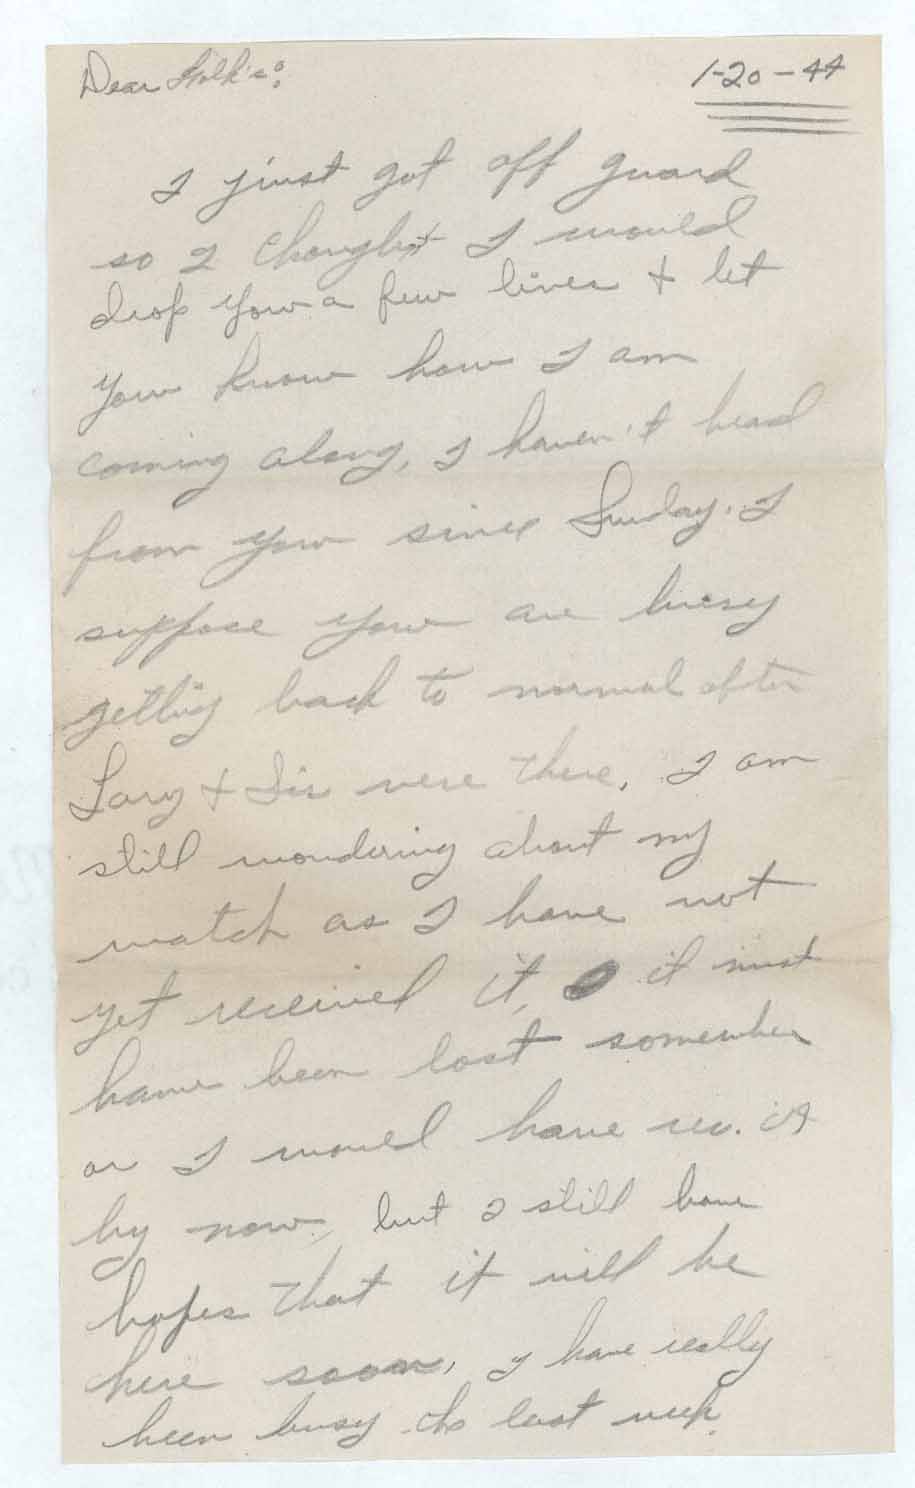 Dear Folk's:
1-20-44
I just got off guard
so I thought I would
drop you a few lines & let
you know how I am
coming along, I haven't head
from you since Sunday. I
suppose you are busy
getting back to normal after
Lary & Sis were there, I am
still wondering about my
watch as I have not
yet received it, it must
have been lost somewher
or I would have rec. it
by now, but I still have
hopes that it will be
here soon, I have really
been busy the last week.